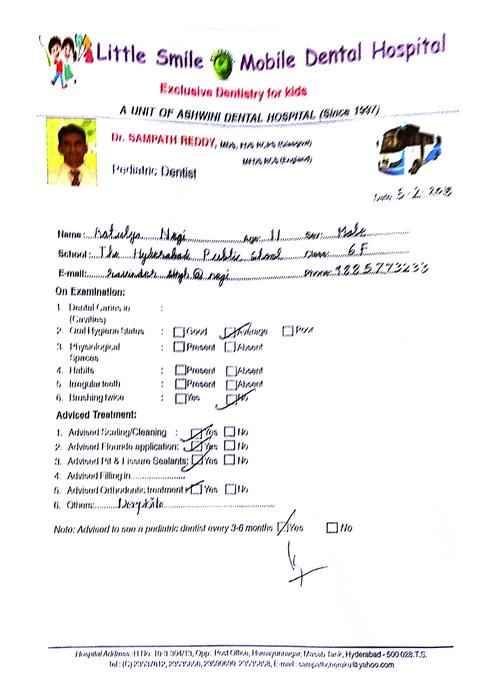 Little Smile Mobile Dental Hospital
Exclusive Dentistry for kids
A UNIT OF ASHWINI DENTAL HOSPITAL (Since 1997)
Dr. SAMPATH REDDY,
Pediatric Dentist
Date: 5-2-
Name: Nagi Age: 11 Sex: Male
School: The Hyderabad Public School Class: 6 F
E-mail: @ nagi Phone: 9885773233
On Examination:
1. Dental Caries in (Cavities) :
2. Oral Hygiene Status : Good Average Poor
3. Physiological Spaces : Present Absent
4. Habits : Present Absent
5. Irregular teeth : Present Absent
6. Brushing twice : Yes No
Adviced Treatment:
1. Advised Scaling/Cleaning : Yes No
2. Advised Flouride application: Yes No
3. Advised Pit & Fissure Sealants: Yes No
4. Advised Filling in
5. Advised Orthodontic treatment Yes No
6. Others:
Note: Advised to see a pediatric dentist every 3-6 months Yes No
Hospital Address: H.No. 10-3-304/13, Opp. Post Office, Humayunnagar, Masab Tank, Hyderabad - 500 028.T.S.